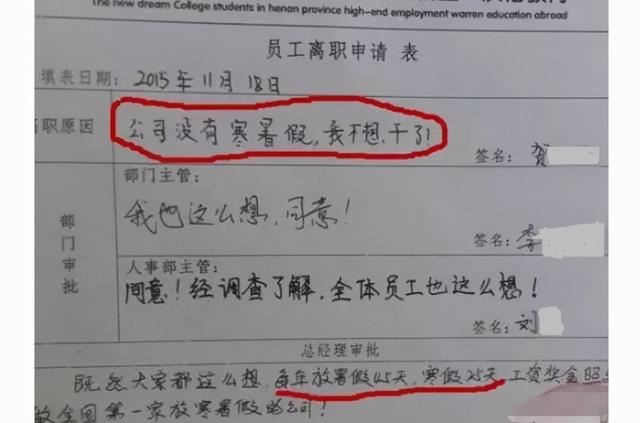 The new dream College students in henan province high-end employment warren education abroad
员工离职申请 表
填表日期: 2015年11月18日
职原因
公司没有寒暑假,我不想干了!
签名: 贺
部门主管:
我也这么想,同意!
签名: 李
部门审批
人事部主管:
同意!经调查了解,全体员工也这么想!
签名: 刘
总经理审批
既然大家都这么想,每年放暑假45天,寒假25天,工资奖金照
做全国第一家放寒暑假的公司!